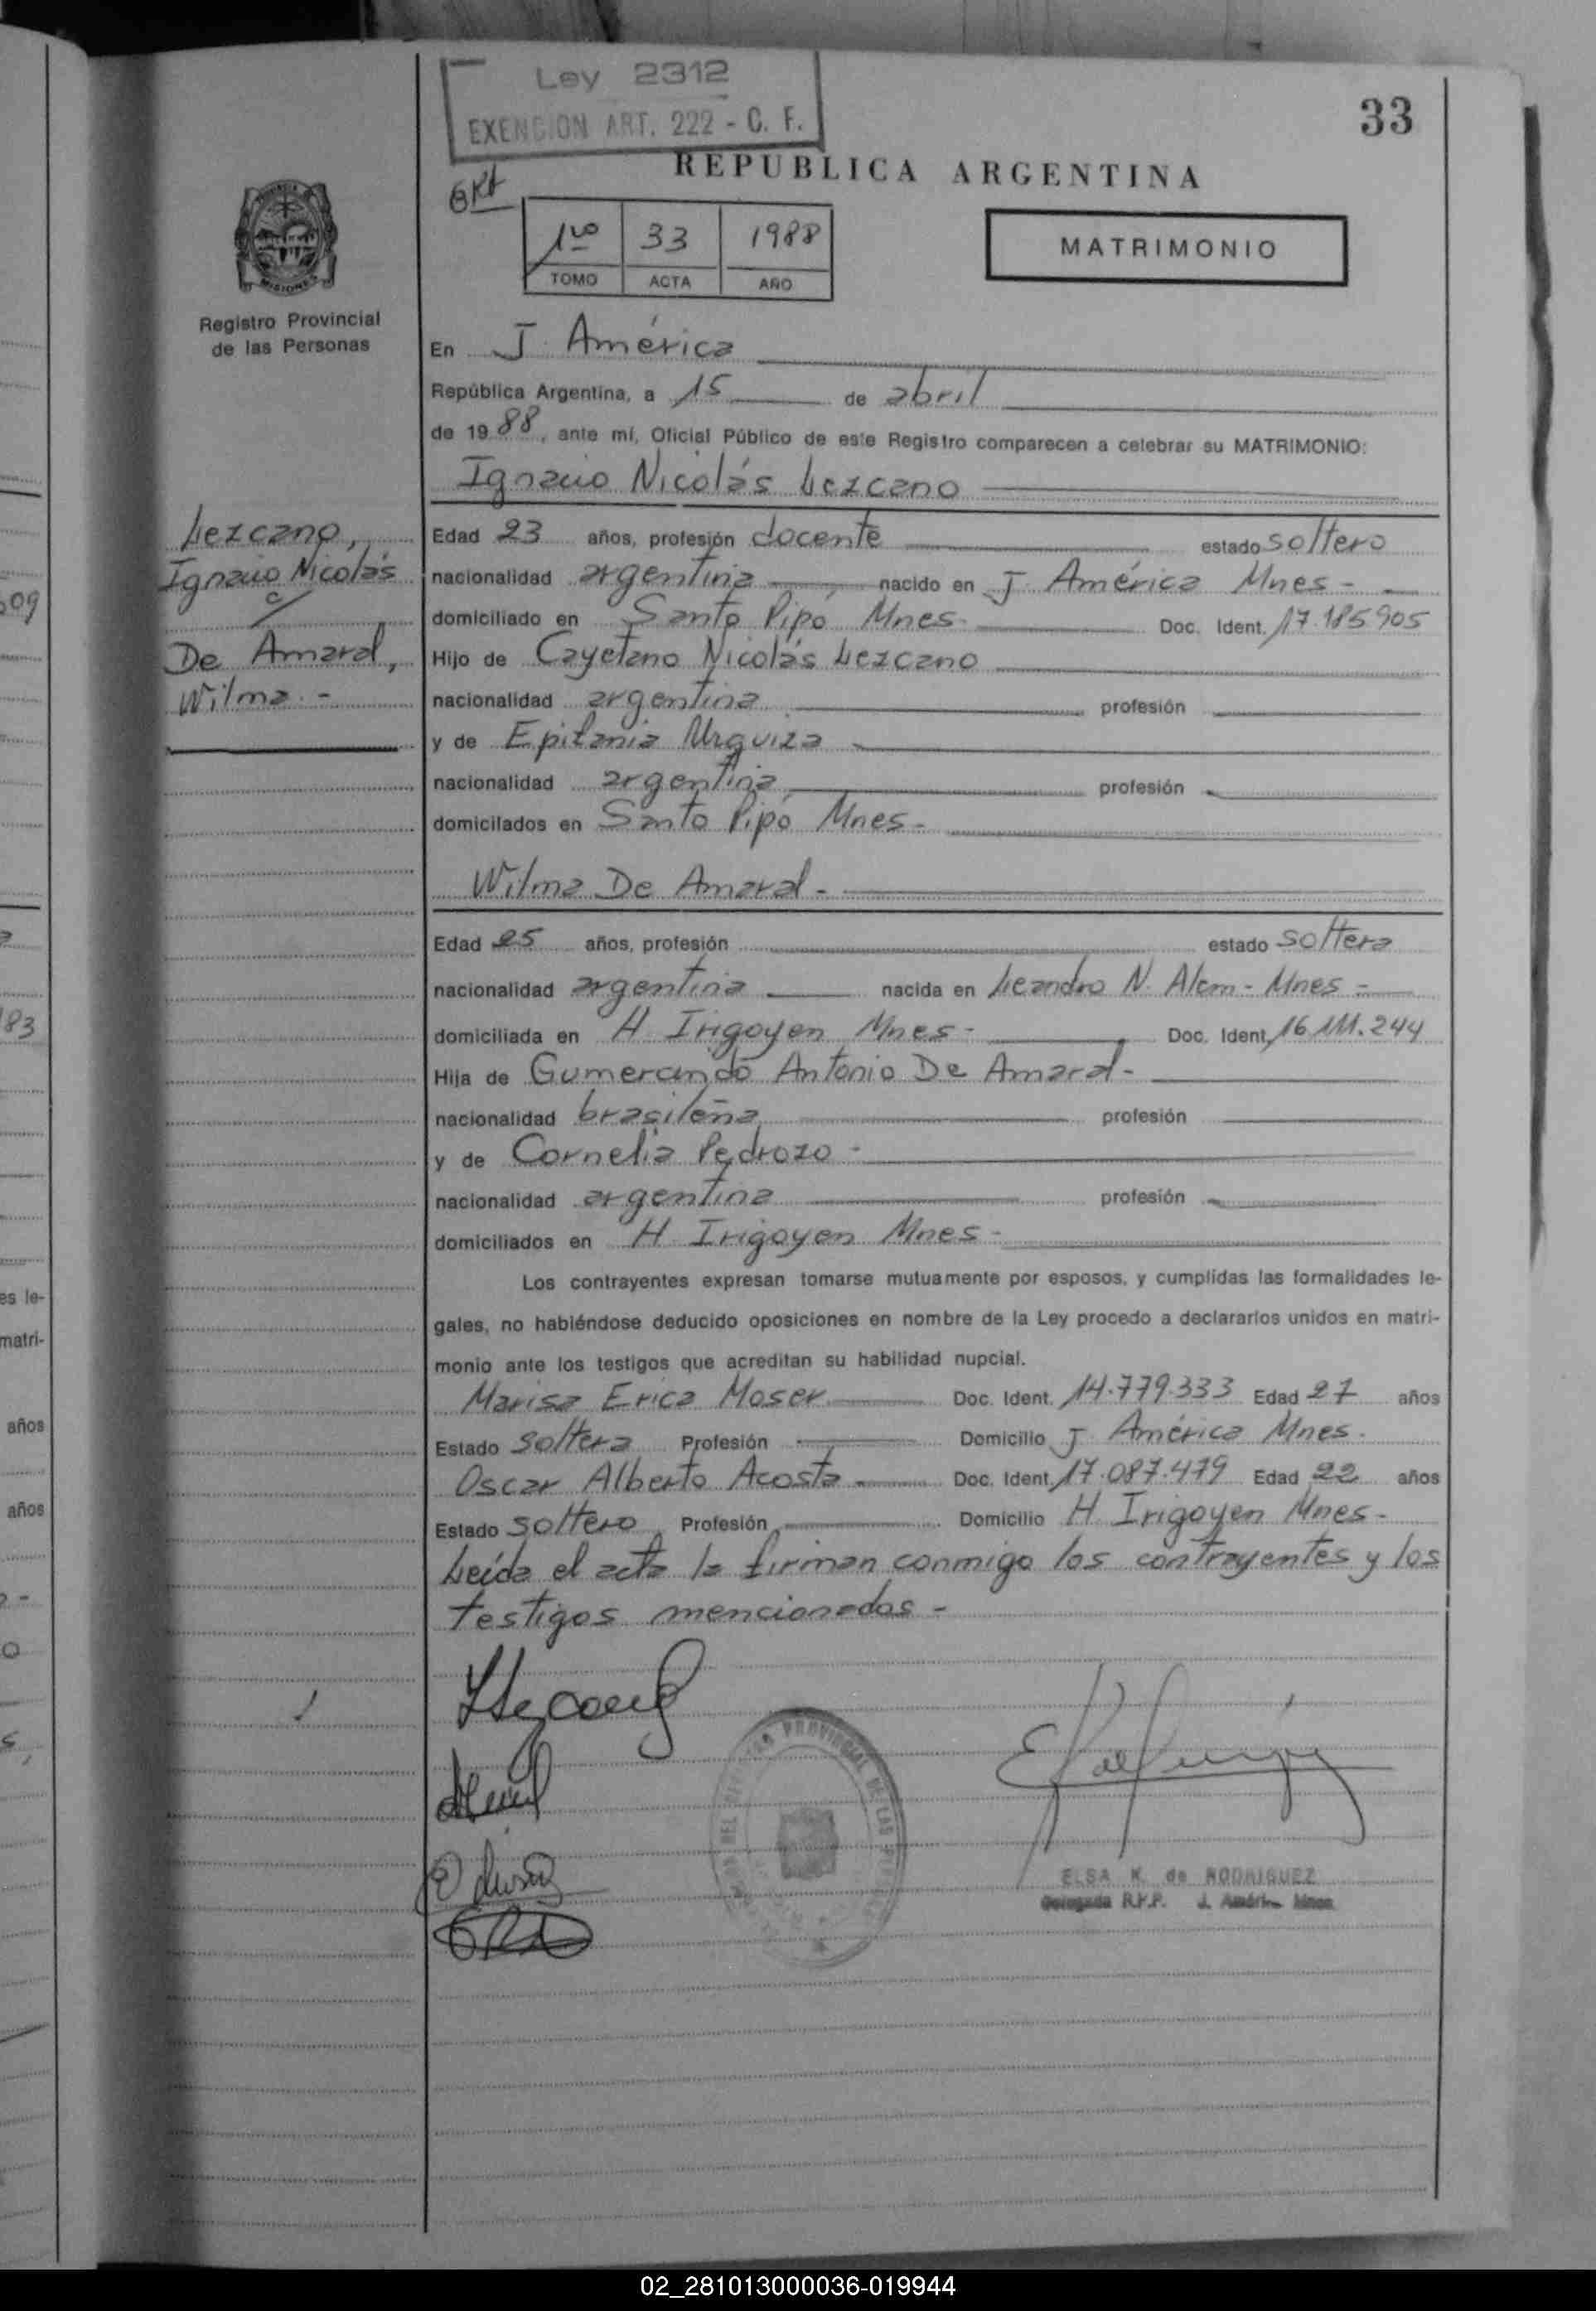 Ley 2312
EXENCION ART. 222 - C. F.
33
REPUBLICA ARGENTINA
1ro 33 1988
TOMO ACTA AÑO
MATRIMONIO
MISIONES
Registro Provincial
de las Personas
En J. América
República Argentina, a 15 de abril
de 1988, ante mí, Oficial Público de este Registro comparecen a celebrar su MATRIMONIO:
Ignacio Nicolás Lezcano
Lezcano,
Ignacio Nicolás
c/
De Amaral,
Wilma.-
Edad 23 años, profesión docente estado soltero
nacionalidad argentina nacido en J. América Mnes-
domiciliado en Santo Pipó Mnes- Doc. Ident. 17.185.905
Hijo de Cayetano Nicolás Lezcano
nacionalidad argentina profesión
y de Epifania Urquiza
nacionalidad argentina profesión
domicilados en Santo Pipó Mnes-
Wilma De Amaral-
Edad 25 años, profesión estado soltera
nacionalidad argentina nacida en Leandro N. Alem- Mnes-
domiciliada en H. Irigoyen Mnes- Doc. Ident. 16.111.244
Hija de Gumercindo Antonio De Amaral-
nacionalidad brasileña profesión
y de Cornelia Pedrozo-
nacionalidad argentina profesión
domiciliados en H. Irigoyen Mnes-
Los contrayentes expresan tomarse mutuamente por esposos, y cumplidas las formalidades le-
gales, no habiéndose deducido oposiciones en nombre de la Ley procedo a declararlos unidos en matri-
monio ante los testigos que acreditan su habilidad nupcial.
Marisa Erica Moser Doc. Ident. 14.779.333 Edad 27 años
Estado soltera Profesión Domicilio J. América Mnes.
Oscar Alberto Acosta Doc. Ident. 17.087.479 Edad 22 años
Estado soltero Profesión Domicilio H. Irigoyen Mnes-
Leída el acta la firman conmigo los contrayentes y los
testigos mencionados-
ELSA K. de RODRIGUEZ
Delegada R.P.P. J. América Mnes
09
83
es le-
matri-
años
años
02_281013000036-019944